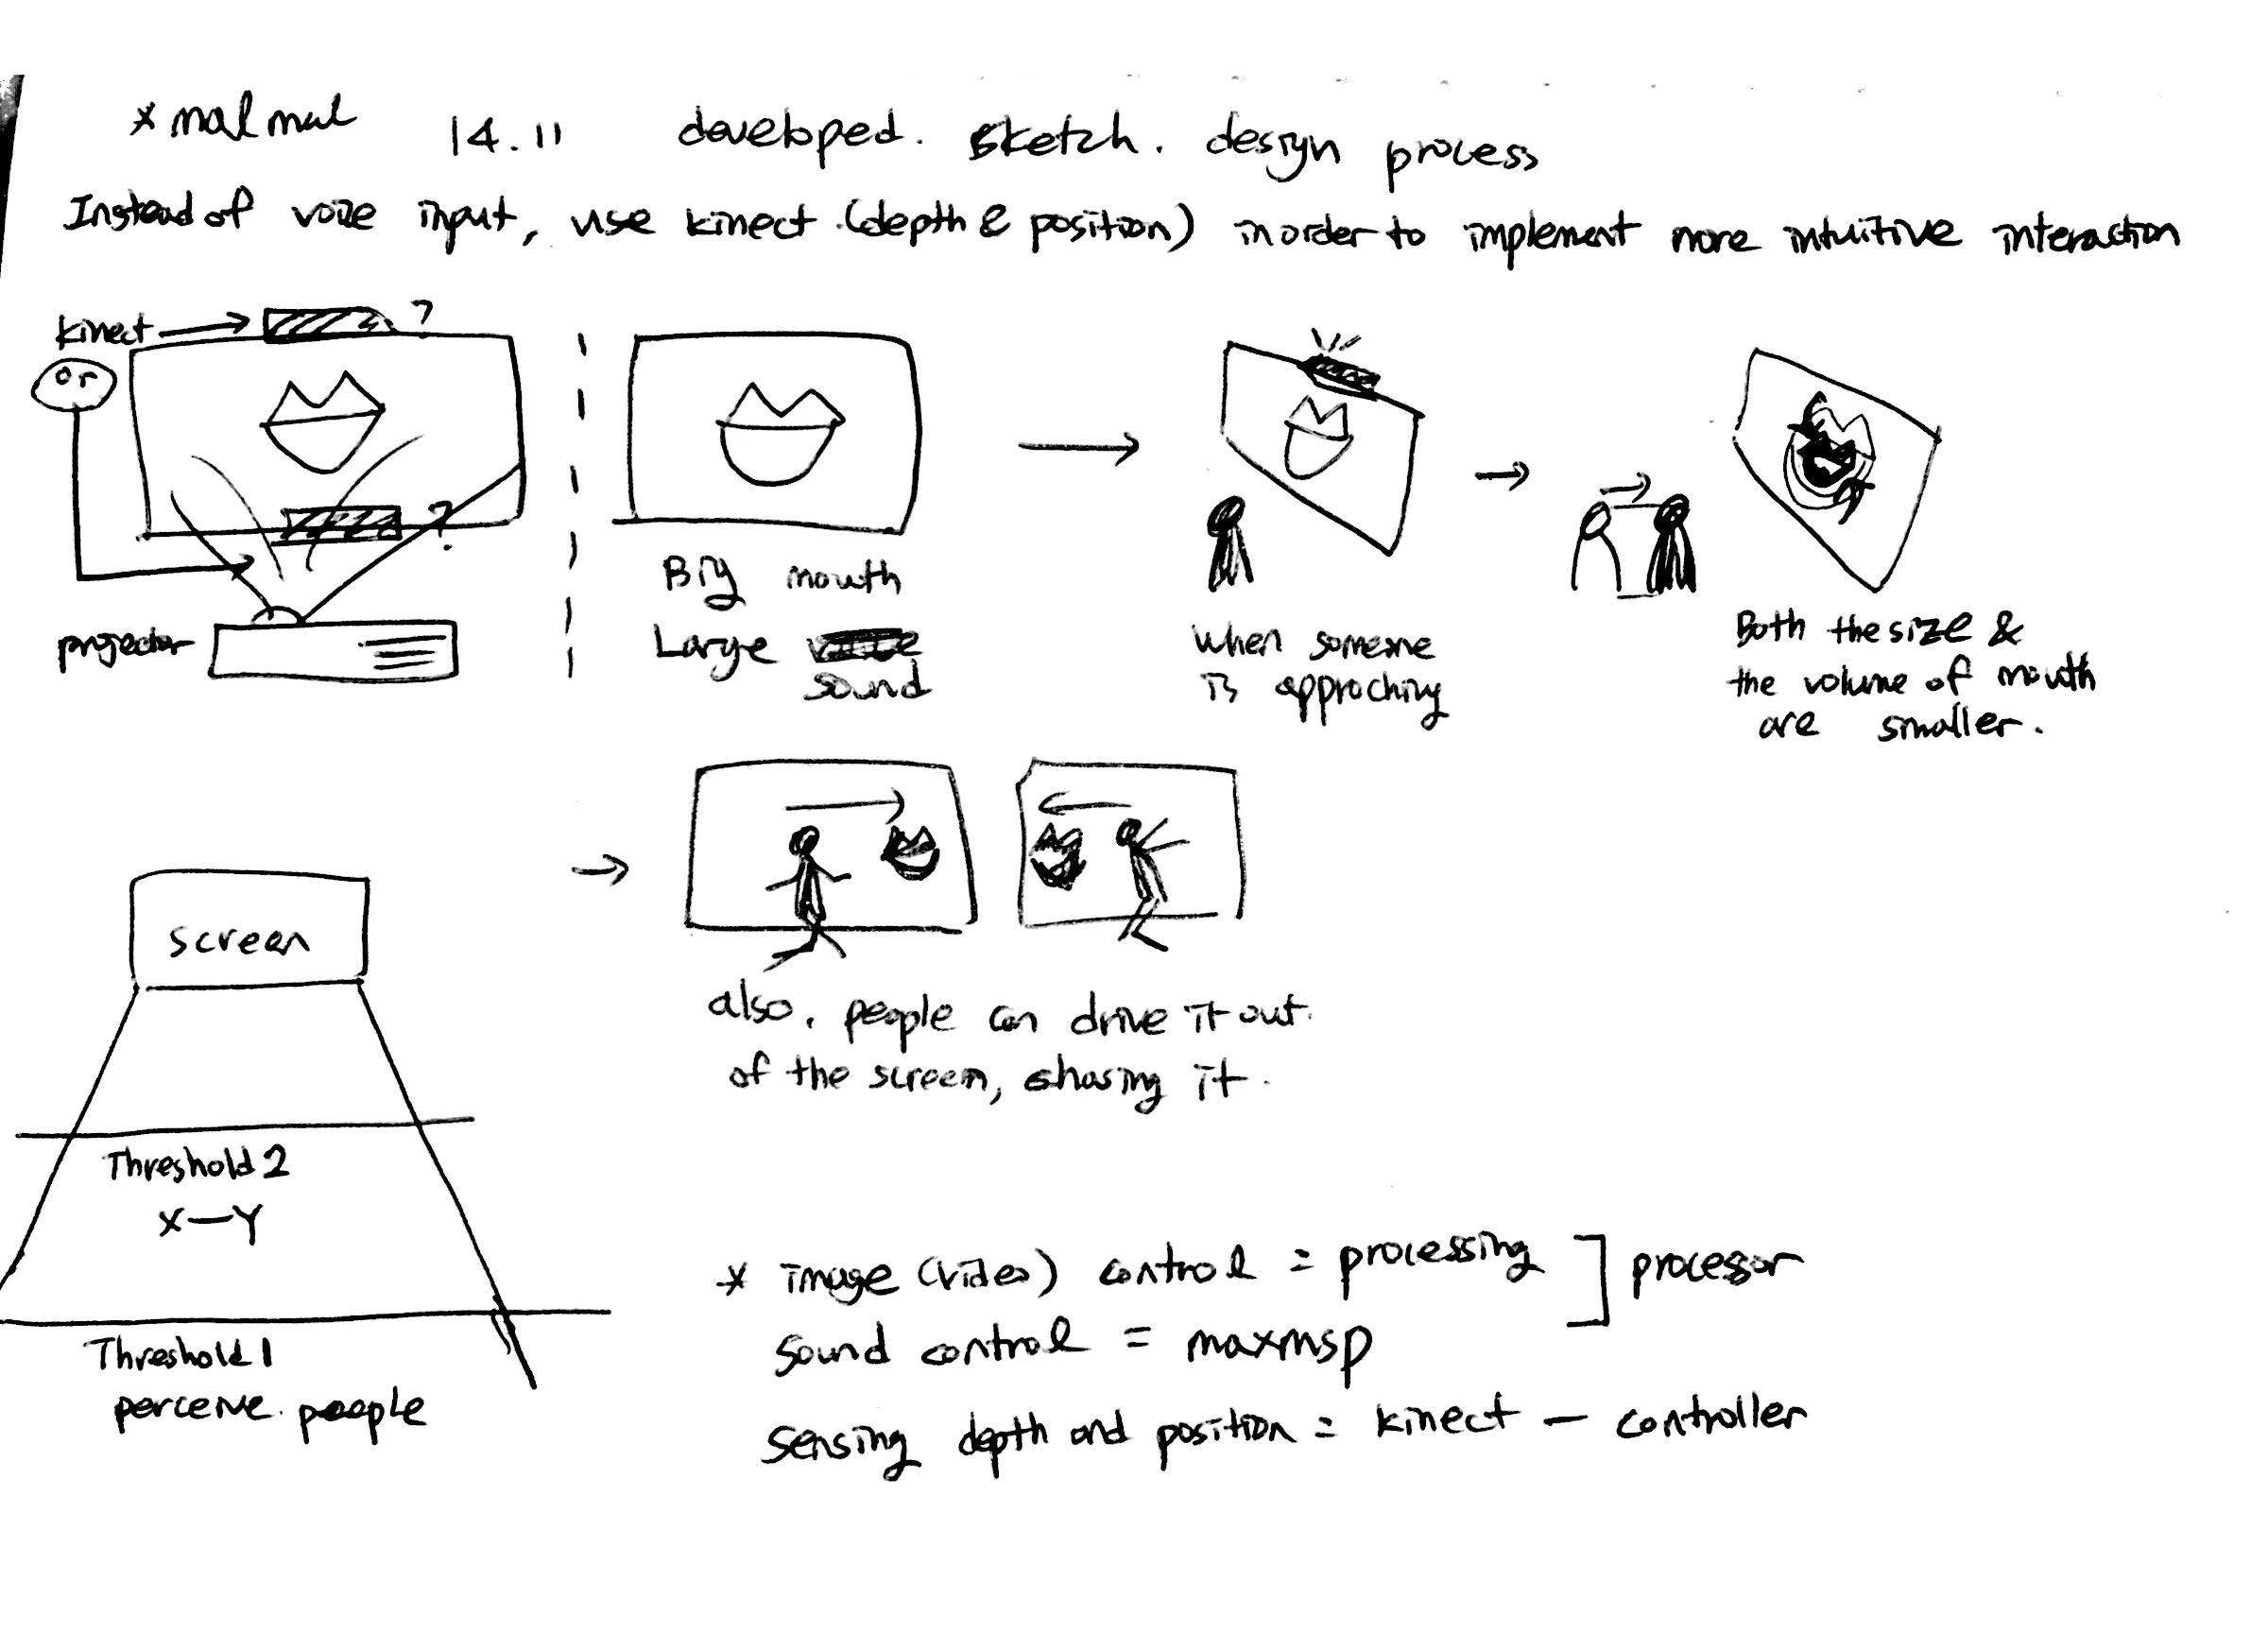 * malmal 14.11 developed. sketch. design process
Instead of voice input, use kinect (depth & position) in order to implement more intuitive interaction
kinect ?
or
?
projector
Big mouth
Large
sound
when someone
is approching
Both the size &
the volume of mouth
are smaller.
also, people can drive it out
of the screen, chasing it.
screen
Threshold 2
X—Y
Threshold 1
perceive people
* image (video) control = processing ] processor
sound control = maxmsp
sensing depth and position = kinect — controller